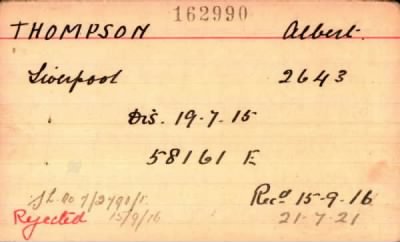 162990
THOMPSON Albert.
Liverpool 2643
Dis. 19-7-15
58161 E
Recd 15-9-16
Rejected 15/9/16 21-7-21